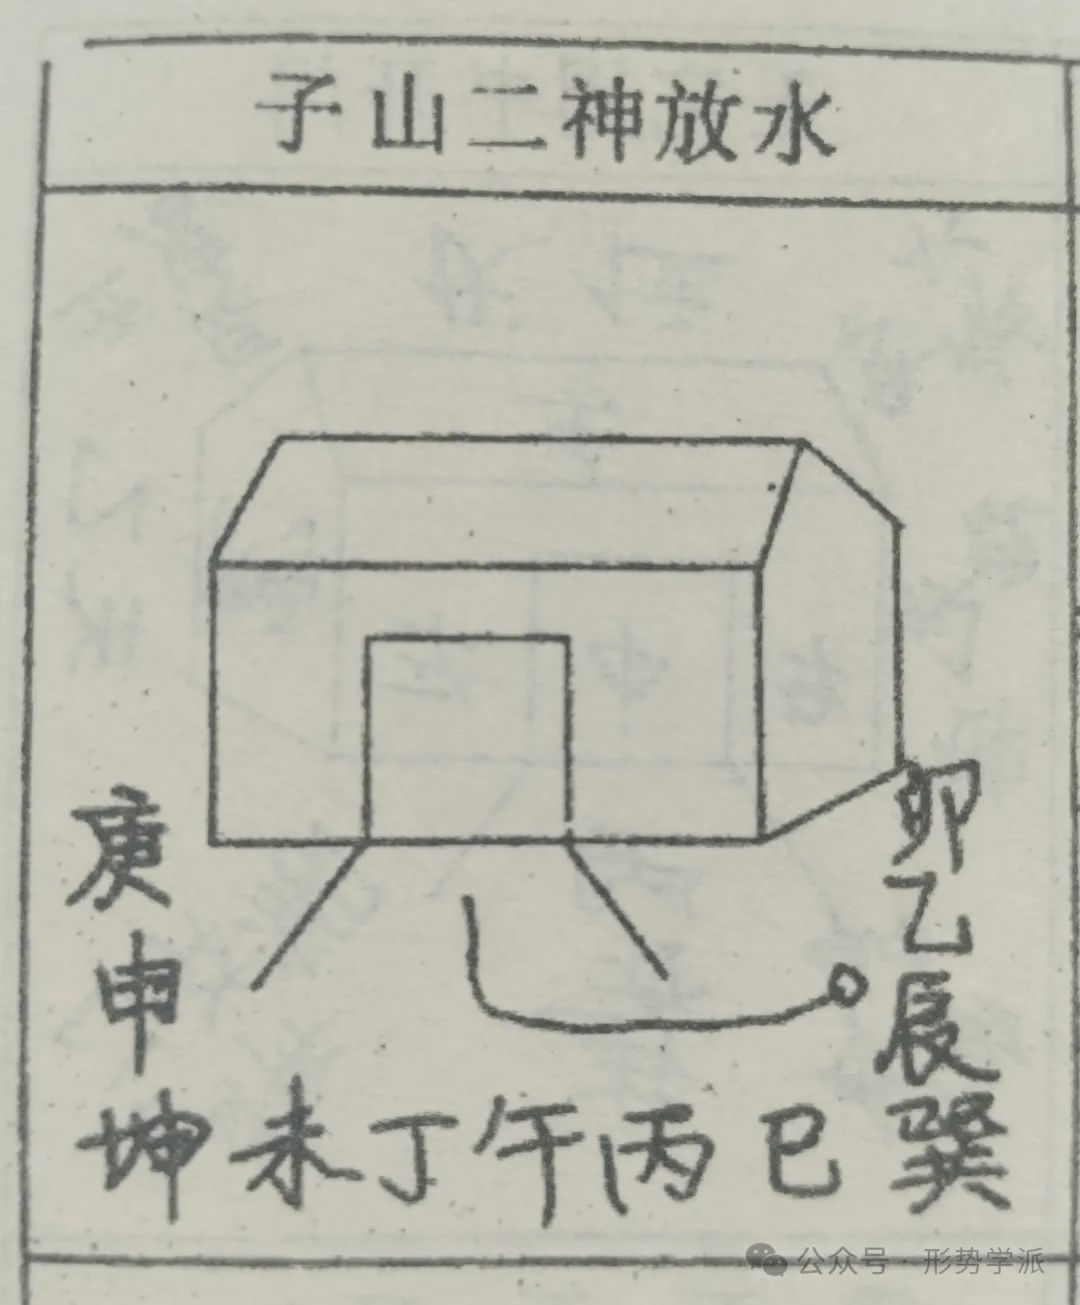 子山二神放水
庚
申
坤未丁午丙巳巽
卯
乙
辰
公众号·形势学派